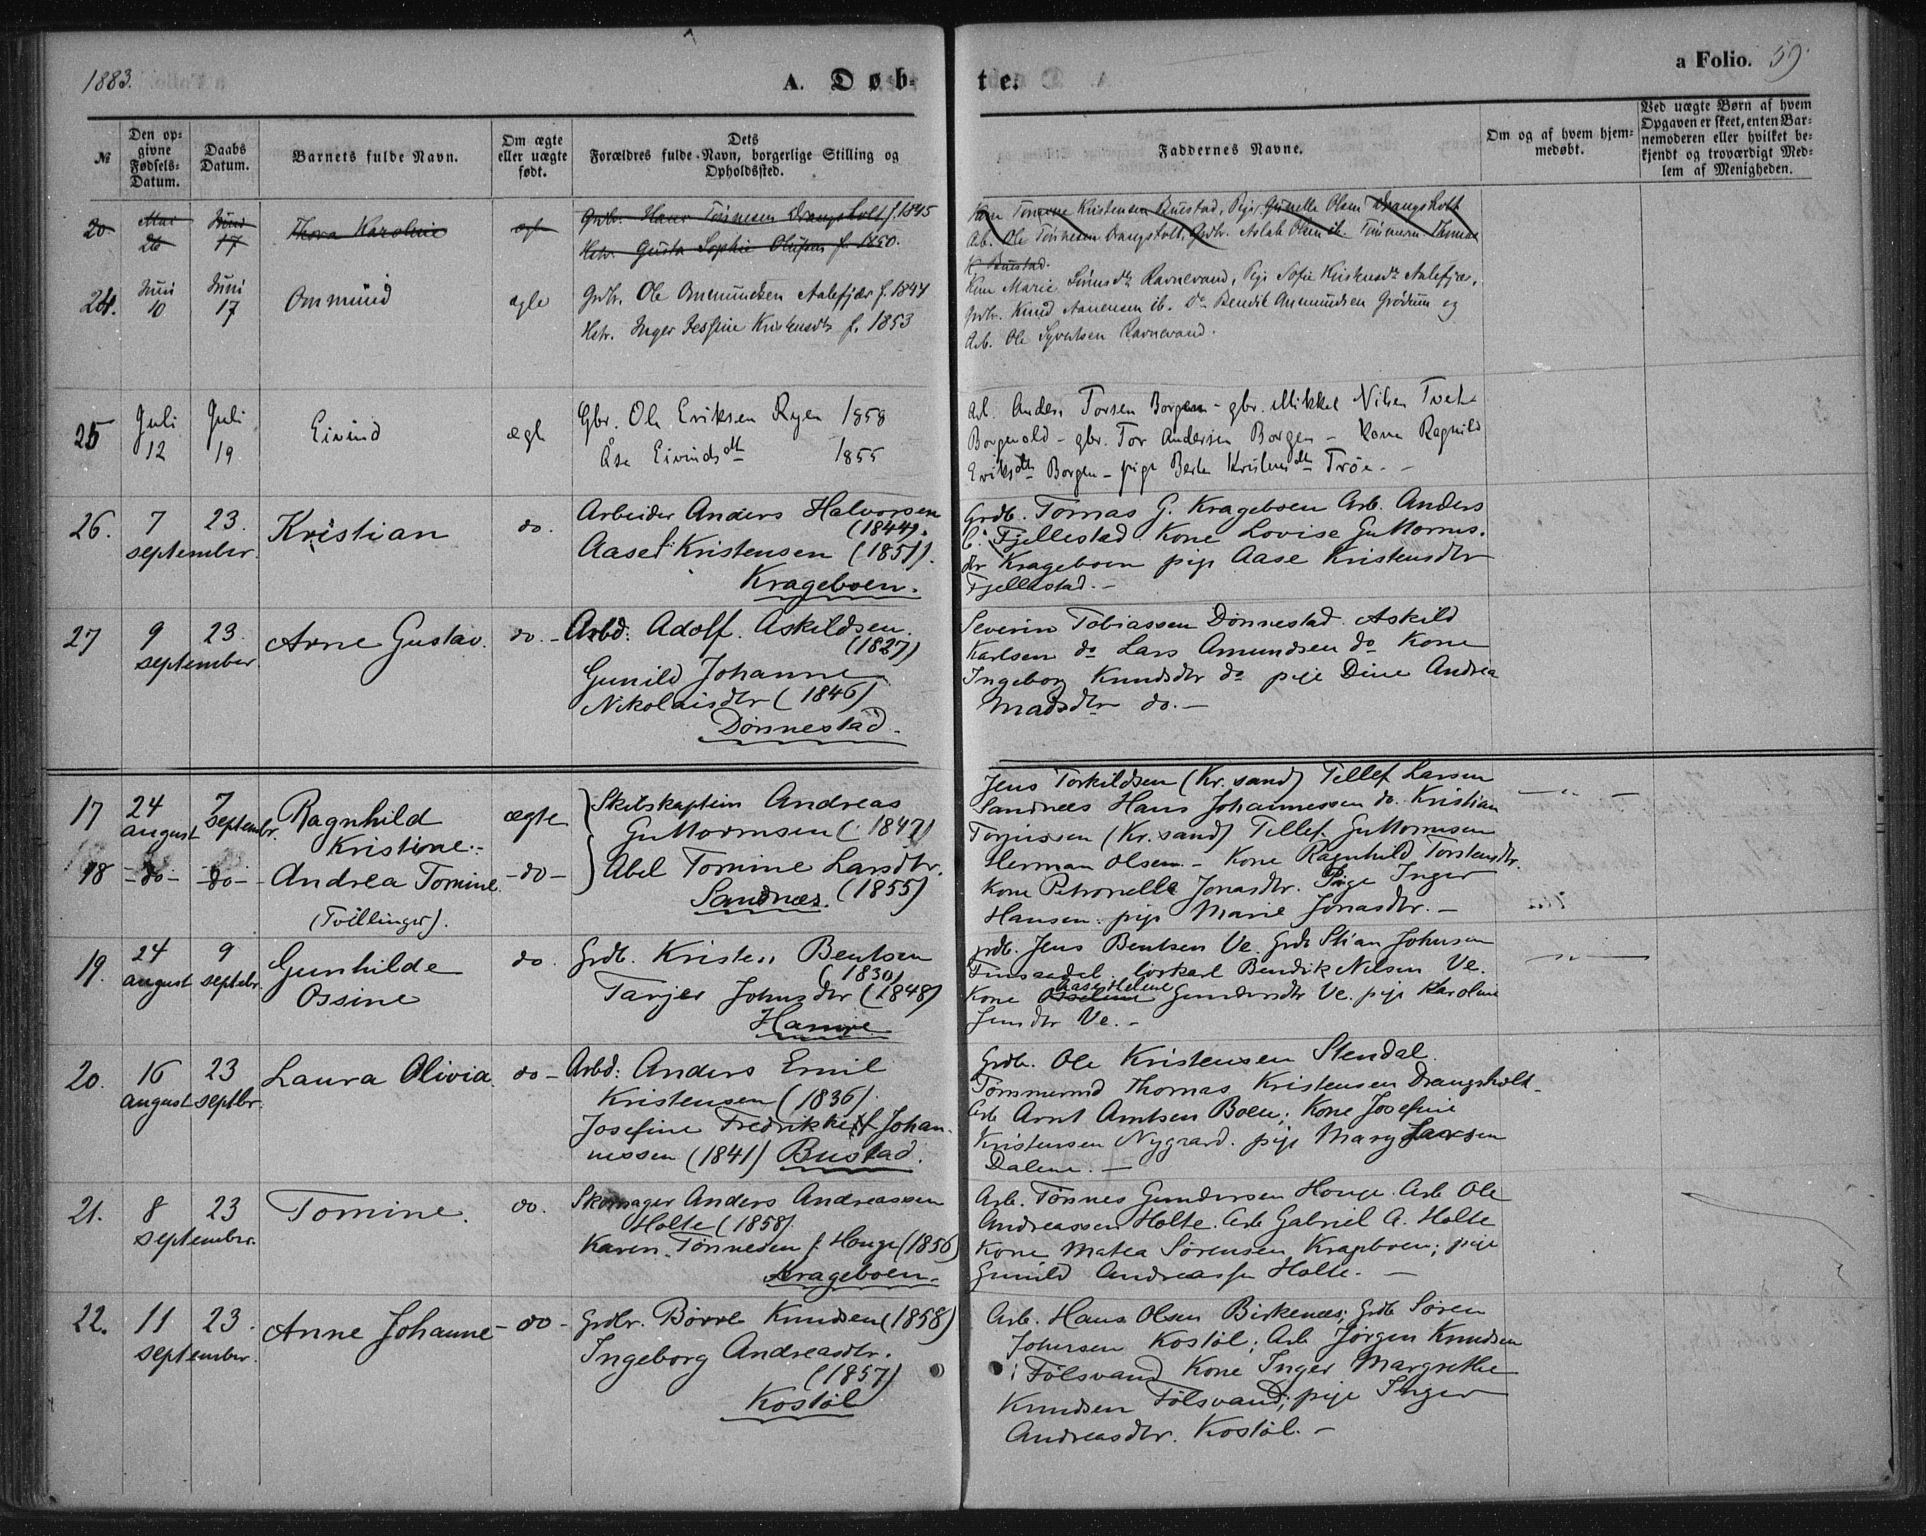 1883.
A. Døb-
te.
a Folio. 59
№
Den op-
givne
Fødsels-
Datum.
Daabs
Datum.
Barnets fulde Navn.
Om ægte
eller uægte
født.
Dets
Forældres fulde Navn, borgerlige Stilling og
Opholdssted.
Faddernes Navne.
Om og af hvem hjem-
medøbt.
Ved uægte Børn af hvem
Opgaven er skeet, enten Bar-
nemoderen eller hvilket be-
kjendt og troværdigt Med-
lem af Menigheden.
20
Mai
26
Juni
17
Thora Karoline
ægte
Grdb. Hans Tønnesen Drangsholt f. 1845
Hstr. Gusta Sophie Olsen f. 1850.
Kone Tomine Kristensen Bustad, Pige Gunelle Olsen Drangsholt
Arb. Ole Tønnesen Drangsholt, Grdbr. Aslak Olsen ib. Tømmerm. Thomas
K. Bustad.
24.
Juni
10
Juni
17
Ommund
ægte
Grdbr. Ole Ommundsen Aalefjær f. 1844
Hstr. Inger Jessine Kristensdtr f. 1853
Kone Marie Ravnevand, Pige Sofie Kristensdtr Aalefjær,
Grdbr. Knud Aanensen ib. Do Bendik Ommundsen Grødum og
Arb. Ole Syvertsen Ravnevand.
25
Juli
12
Juli
19
Eivind
ægte
Gbr. Ole Eriksen Ryen 1858
Åse Eivindsdtr 1855
Arb. Anders Torsen Borgen - gbr. Mikkel Nilsen Tveit
gbr. Tor Andersen Borgen - Kone Ragnild
Eriksdtr Borgen - pige Berte Kristensdtr Trøe. -
26.
7
september
23.
Kristian
do.
Arbeider Anders Halvorsen
(1844).
Aase Kristensen (1851).
Krageboen.
Grdb. Tomas G. Krageboen Arb. Anders
Fjellestad Kone Lovise Guttorms-
dtr Krageboen pige Aase Kristensdtr
Fjellestad. -
27
9
september
23.
Arne Gustav.
do. -
Arbd. Adolf. Askildsen.
(1827)
Gunild Johanne
Nikolaisdtr (1846)
Dønnestad.
Severin Tobiassen Dønnestad. Askild
Karlsen do Lars Amundsen do Kone
Ingeborg Knudsdtr do pige Dine Andrea
Madsdtr do. -
17
24
august
7
Septembr.
Ragnhild
Kristine. -
ægte
Skibskaptein Andreas
Guttormsen (1847)
Jens Torkildsen (Kr.sand) Tellef Larsen
Sandnæs Hans Johannessen do. Kristian
Torjussen (Kr.sand) Tellef Guttormsen
18
- do -
- do -
Andrea Tomine.
(Tvillinger).
- do -
Abel Tomine Larsdtr.
Sandnæs. (1855)
Herman Olsen. - Kone Ragnhild Torstensdtr.
Kone Petronelle Jonasdtr. Pige Inger
Hansen. pige Marie Jonasdtr. -
19.
24
august
9
septebr.
Gunhilde
Ossine
do.
Grdb. Kristen Bentsen
(1830)
Tarjer Johnsdtr (1848)
Hamre
grdb. Jens Bentsen Ve. Grdb Stian Johnsen
Bendik Nilsen Ve.
Aase Helene
Kone Osseline Gundersdtr Ve. pige Karoline
Jensdtr Ve. -
20.
16
august
23
septbr.
Laura Olivia.
do -
Arbd: Anders Emil
Kristensen (1836)
Josefine Fredrikke Johan-
nessen (1841) Bustad.
Grdb. Ole Kristensen Stendal.
Tømmermd Thomas Kristensen Drangsholt -
Arb Arnt Arntsen Boen; Kone Josefine
Kristensen Nygaard. pige Mary Larsen
Dalene. -
21.
8
september.
23
Tomine.
do.
Skomager Anders Andreassen
Holte (1858)
Karen Tønnesen f. Houge (1856)
Krageboen.
Arb. Tønnes Gundersen Houge. Arb Ole
Andreassen Holte. Arb Gabriel A. Holte
Kone Matea Sørensen Krageboen; pige
Gunild Andreassen Holte. -
22.
11
september.
23.
Anne Johanne
- do -
Grdbr. Børre Knudsen (1858)
Ingeborg Andreasdtr.
(1857)
Kostøl
Arb. Hans Olsen Birkenæs; Grdb Søren
Johnsen Kostøl; Arb Jørgen Knudsen
i Følsvand Kone Inger Margrethe
Knudsen Følsvand; pige Inger
Andreasdtr. Kostøl. -